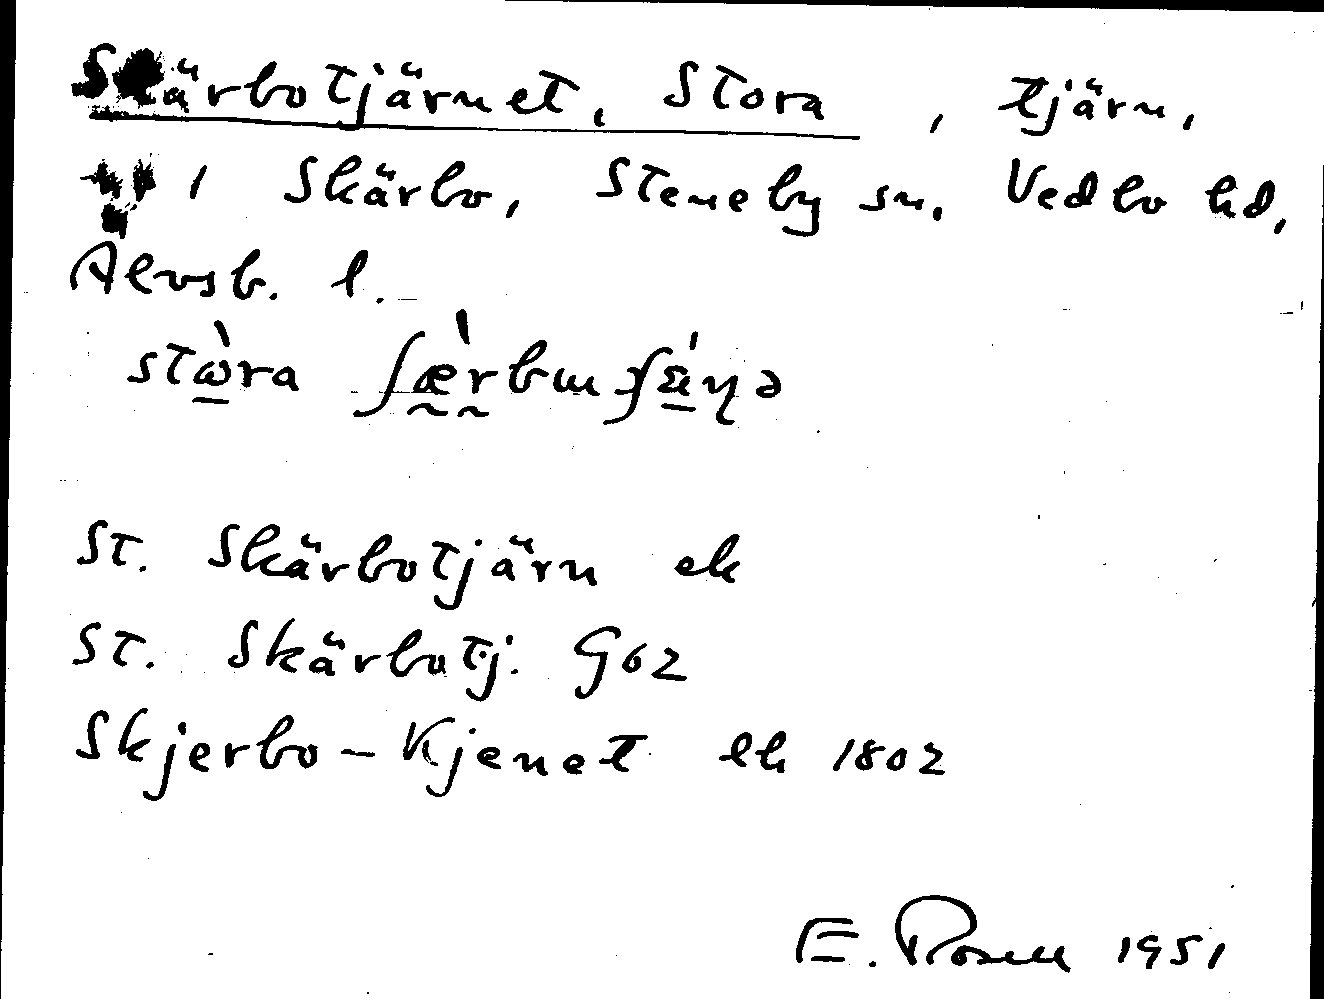 Skärbotjärnet, Stora, tjärn,
1 Skärbo, Steneby sn. Vedbo hd,
Älvsb. l.
stὼra ʃæ̀rbɯʃä́ɳə
St. Skärbotjärn ek
St. Skärbotj. G62
Skjerbo-Kjenet lh 1802
E. Rosell 1951